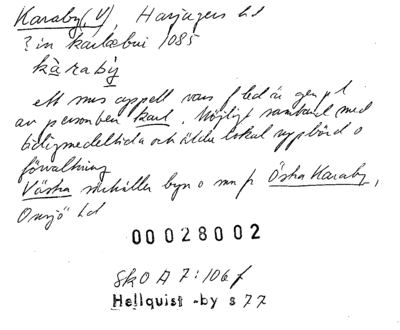 Karaby (, V), Harjagers hd
? in karlæbui 1085
kàrabỳ
ett urspr. appell vars f led är gen pl
av personben karl. Möjligt samband med
tidigmedeltida och äldre lokal uppbörd o
förvaltning
Västra skiljer byn o sn fr Östra Karaby,
Onsjö hd
00028002
SkO A 7:106 f
Hellquist -by s 77